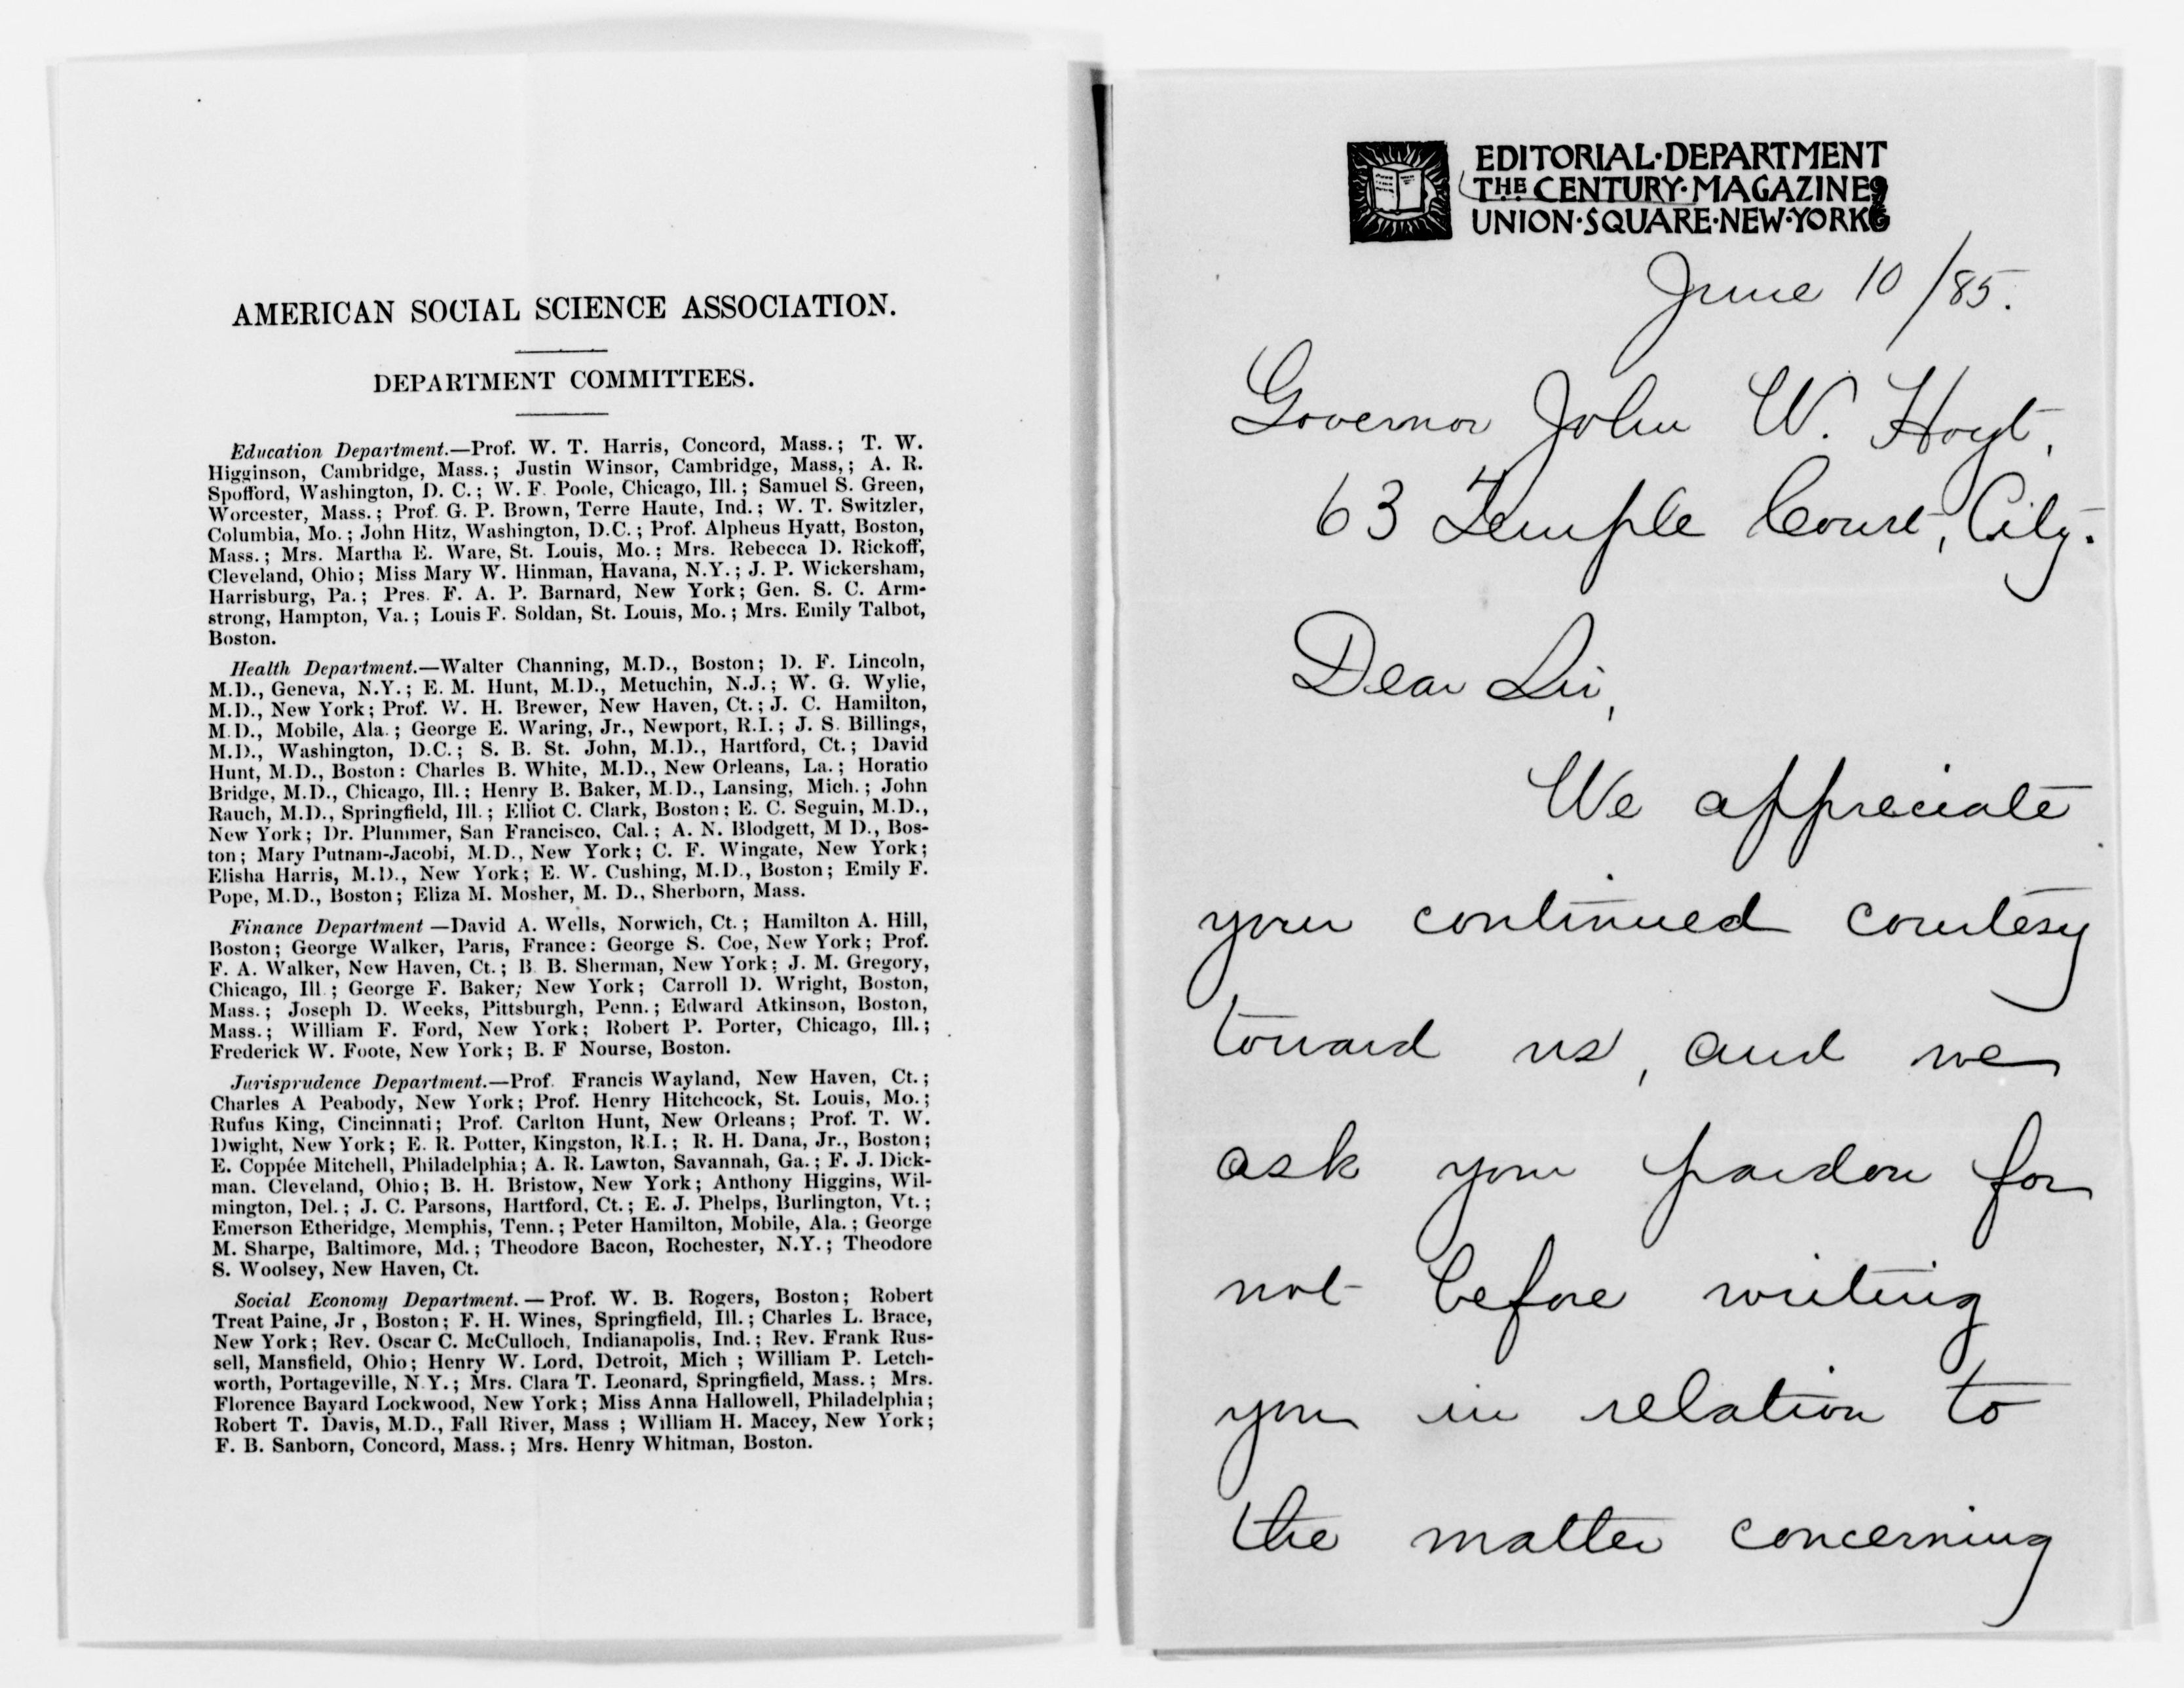 AMERICAN SOCIAL SCIENCE ASSOCIATION.
DEPARTMENT COMMITTEES.
Education Department.—Prof. W. T. Harris, Concord, Mass.; T. W.
Higginson, Cambridge, Mass.; Justin Winsor, Cambridge, Mass,; A. R.
Spofford, Washington, D. C.; W. F. Poole, Chicago, Ill.; Samuel S. Green,
Worcester, Mass.; Prof. G. P. Brown, Terre Haute, Ind.; W. T. Switzler,
Columbia, Mo.; John Hitz, Washington, D.C.; Prof. Alpheus Hyatt, Boston,
Mass.; Mrs. Martha E. Ware, St. Louis, Mo.; Mrs. Rebecca D. Rickoff,
Cleveland, Ohio; Miss Mary W. Hinman, Havana, N.Y.; J. P. Wickersham,
Harrisburg, Pa.; Pres. F. A. P. Barnard, New York; Gen. S. C. Arm-
strong, Hampton, Va.; Louis F. Soldan, St. Louis, Mo.; Mrs. Emily Talbot,
Boston.
Health Department.—Walter Channing, M.D., Boston; D. F. Lincoln,
M.D., Geneva, N.Y.; E. M. Hunt, M.D., Metuchin, N.J.; W. G. Wylie,
M.D., New York; Prof. W. H. Brewer, New Haven, Ct.; J. C. Hamilton,
M.D., Mobile, Ala.; George E. Waring, Jr., Newport, R.I.; J. S. Billings,
M.D., Washington, D.C.; S. B. St. John, M.D., Hartford, Ct.; David
Hunt, M.D., Boston: Charles B. White, M.D., New Orleans, La.; Horatio
Bridge, M.D., Chicago, Ill.; Henry B. Baker, M.D., Lansing, Mich.; John
Rauch, M.D., Springfield, Ill.; Elliot C. Clark, Boston; E. C. Seguin, M.D.,
New York; Dr. Plummer, San Francisco, Cal.; A. N. Blodgett, M D., Bos-
ton; Mary Putnam-Jacobi, M.D., New York; C. F. Wingate, New York;
Elisha Harris, M.D., New York; E. W. Cushing, M.D., Boston; Emily F.
Pope, M.D., Boston; Eliza M. Mosher, M. D., Sherborn, Mass.
Finance Department —David A. Wells, Norwich, Ct.; Hamilton A. Hill,
Boston; George Walker, Paris, France: George S. Coe, New York; Prof.
F. A. Walker, New Haven, Ct.; B. B. Sherman, New York; J. M. Gregory,
Chicago, Ill.; George F. Baker; New York; Carroll D. Wright, Boston,
Mass.; Joseph D. Weeks, Pittsburgh, Penn.; Edward Atkinson, Boston,
Mass.; William F. Ford, New York; Robert P. Porter, Chicago, Ill.;
Frederick W. Foote, New York; B. F Nourse, Boston.
Jurisprudence Department.—Prof. Francis Wayland, New Haven, Ct.;
Charles A Peabody, New York; Prof. Henry Hitchcock, St. Louis, Mo.;
Rufus King, Cincinnati; Prof. Carlton Hunt, New Orleans; Prof. T. W.
Dwight, New York; E. R. Potter, Kingston, R.I.; R. H. Dana, Jr., Boston;
E. Coppée Mitchell, Philadelphia; A. R. Lawton, Savannah, Ga.; F. J. Dick-
man. Cleveland, Ohio; B. H. Bristow, New York; Anthony Higgins, Wil-
mington, Del.; J. C. Parsons, Hartford, Ct.; E. J. Phelps, Burlington, Vt.;
Emerson Etheridge, Memphis, Tenn.; Peter Hamilton, Mobile, Ala.; George
M. Sharpe, Baltimore, Md.; Theodore Bacon, Rochester, N.Y.; Theodore
S. Woolsey, New Haven, Ct.
Social Economy Department.—Prof. W. B. Rogers, Boston; Robert
Treat Paine, Jr, Boston; F. H. Wines, Springfield, Ill.; Charles L. Brace,
New York; Rev. Oscar C. McCulloch, Indianapolis, Ind.; Rev. Frank Rus-
sell, Mansfield, Ohio; Henry W. Lord, Detroit, Mich ; William P. Letch-
worth, Portageville, N.Y.; Mrs. Clara T. Leonard, Springfield, Mass.; Mrs.
Florence Bayard Lockwood, New York; Miss Anna Hallowell, Philadelphia;
Robert T. Davis, M.D., Fall River, Mass ; William H. Macey, New York;
F. B. Sanborn, Concord, Mass.; Mrs. Henry Whitman, Boston.
EDITORIAL·DEPARTMENT
THE CENTURY·MAGAZINE
UNION·SQUARE·NEW·YORK
June 10/85.
Governor John W. Hoyt,
63 Temple Court, City.
Dear Sir,
We appreciate
your continued courtesy
toward us, and we
ask your pardon for
not before writing
you in relation to
the matter concerning